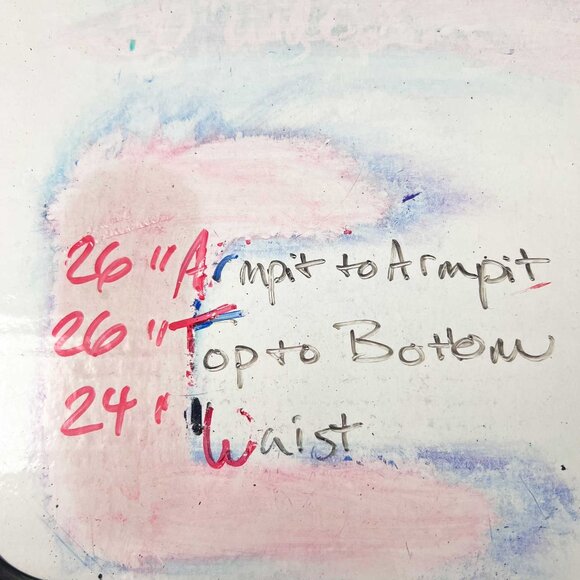 26" Armpit to Armpit
26" Top to Bottom
24" Waist